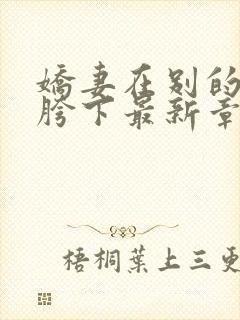 嬌妻在别的
胯下最新章
梧桐葉上三更